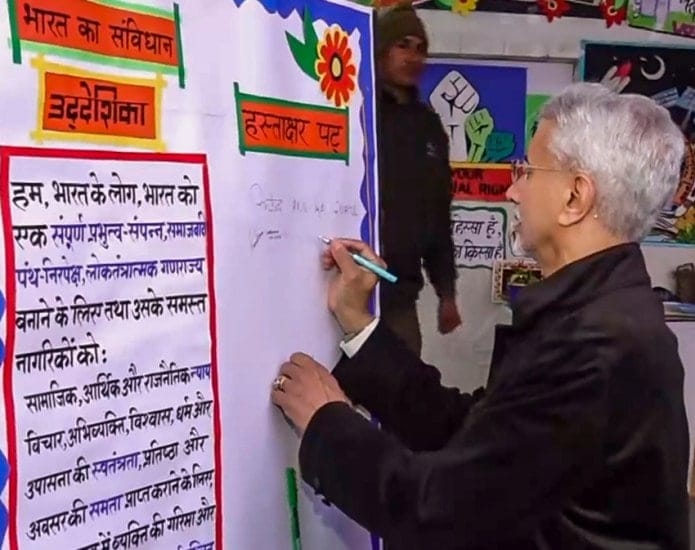 भारत का संविधान
उद्देशिका
हम, भारत के लोग, भारत को
एक संपूर्ण प्रभुत्व-संपन्न, समाजवादी
पंथ-निरपेक्ष, लोकतंत्रात्मक गणराज्य
बनाने के लिए तथा उसके समस्त
नागरिकों को:
सामाजिक, आर्थिक और राजनैतिक न्याय
विचार, अभिव्यक्ति, विश्वास, धर्म और
उपासना की स्वतंत्रता, प्रतिष्ठा और
अवसर की समता प्राप्त कराने के लिए,
में व्यक्ति की गरिमा और
हस्ताक्षर पट्
YOUR